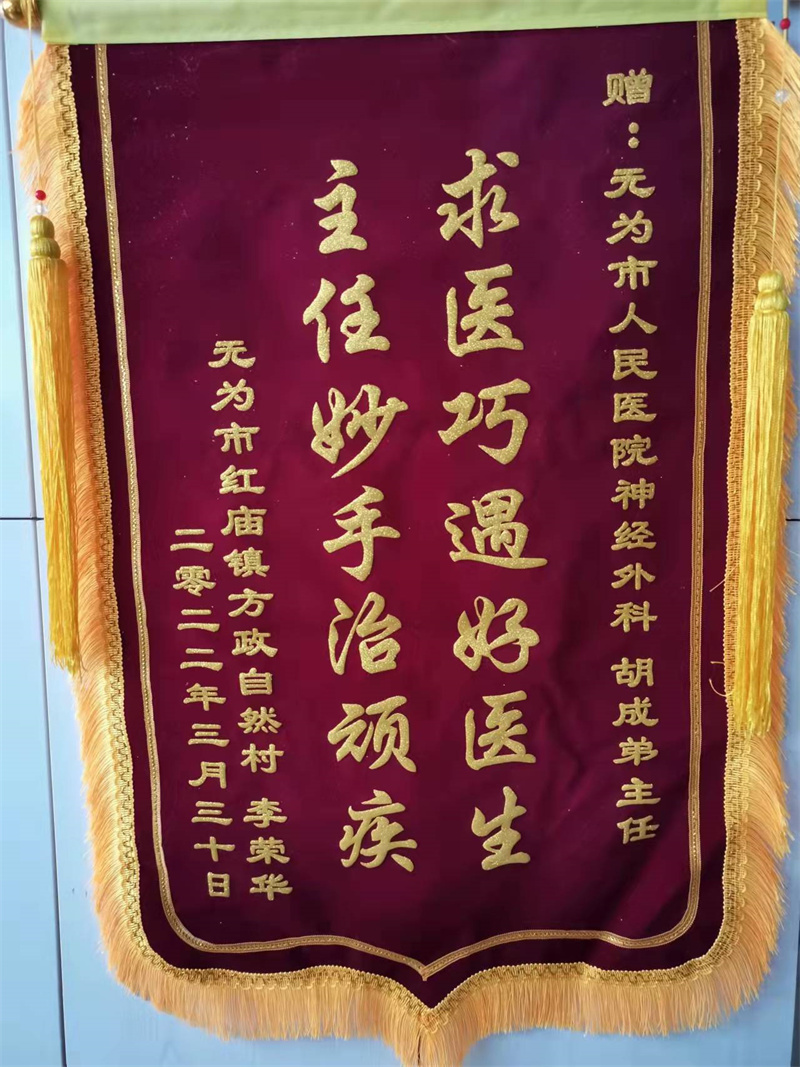 赠：无为市人民医院神经外科 胡成弟主任
求医巧遇好医生
主任妙手治顽疾
无为市红庙镇方政自然村 李荣华
二零二二年三月三十日